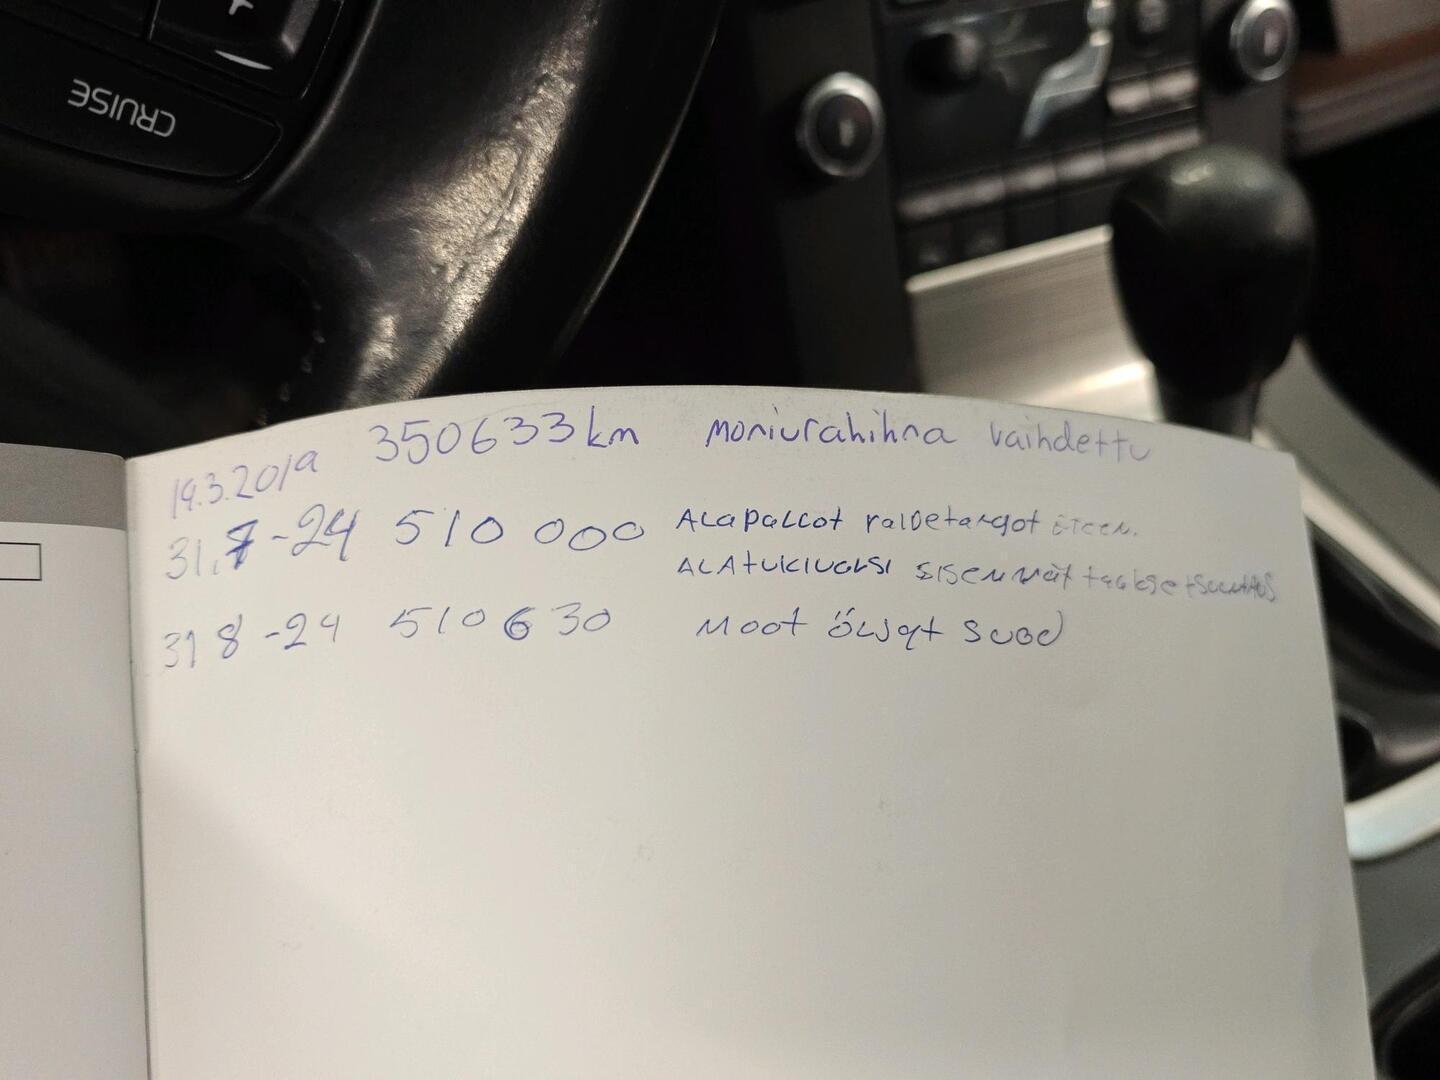 CRUISE
350633km moniurahihna vaihdettu
19.3.2019
31.7-24 510 000 ALAPALLOT raIDetangot ETEEN.
ALAtukivarsi sisemmät taakse +suuntaus
31 8 -24 510630 Moot ÖLJyt suod